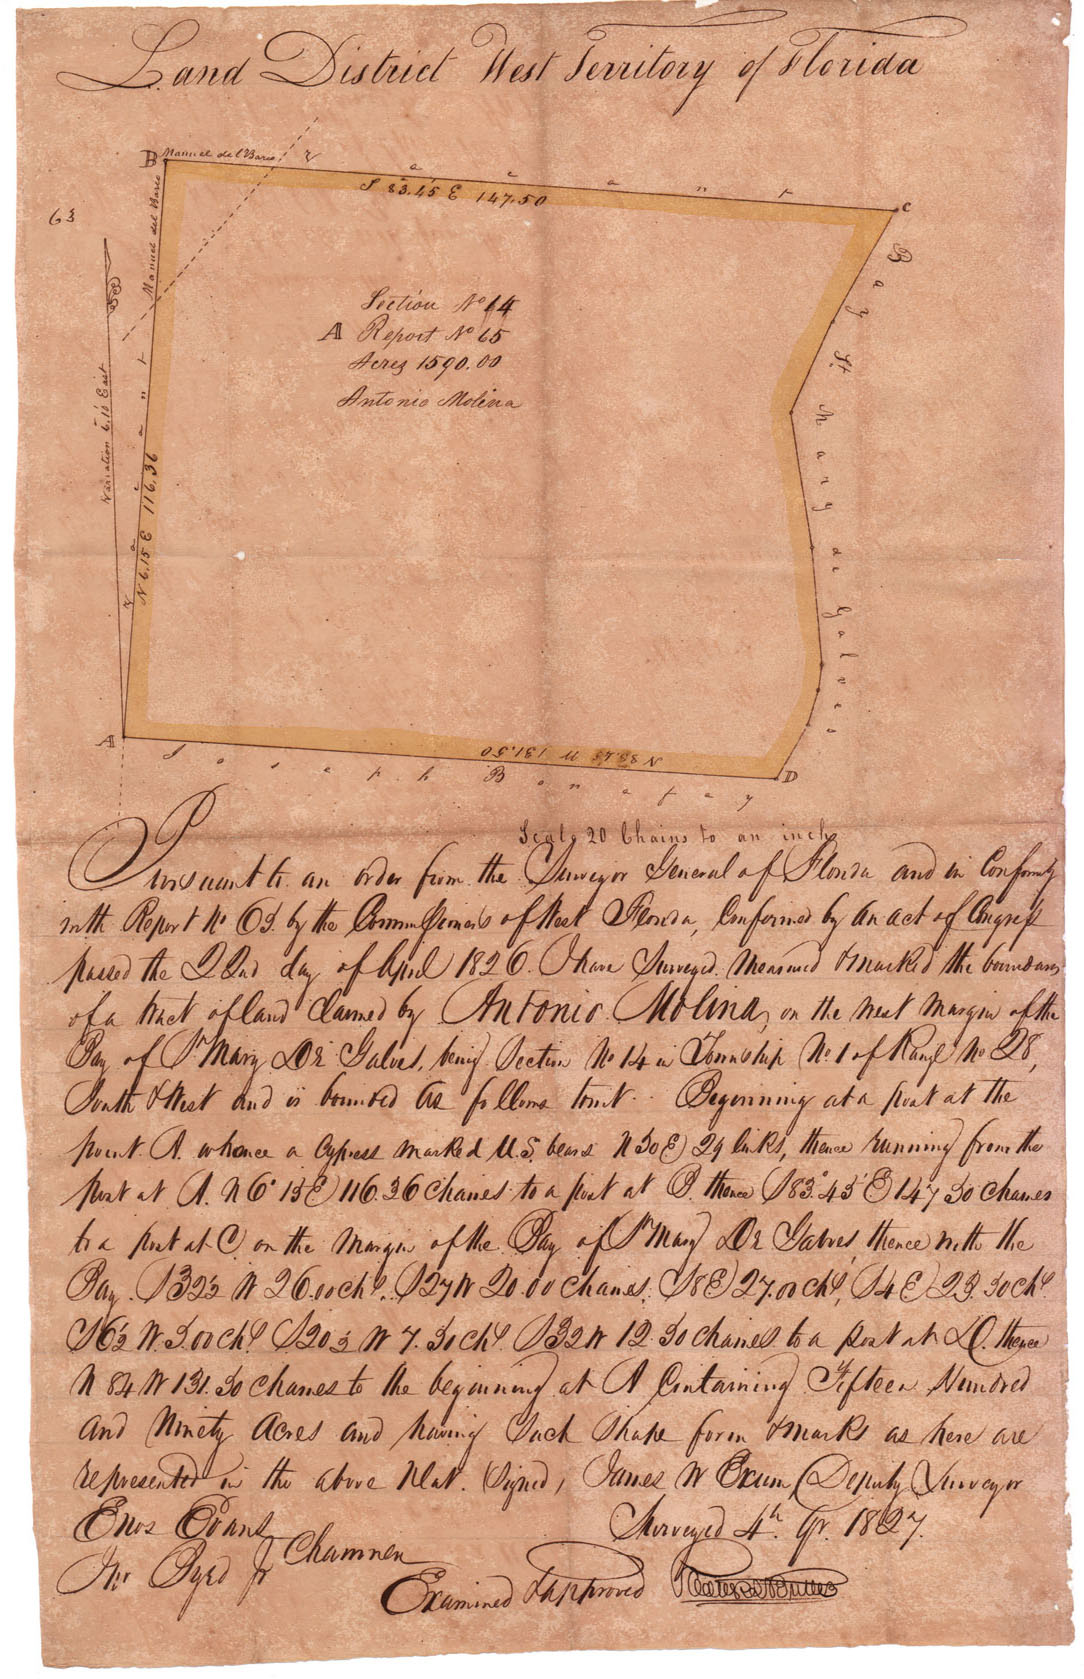 Land District West Territory of Florida
B Manuel del Barco V a c a n t
S 83.45 E 147.50
C
63
Manuel del Barco
V a c a n t
N 6.15 E 116.36
Variation 6.10 East
Section No 14
A Report No 65
Acres 1590.00
Antonio Molina
Bay St. Mary de Galvez
A
N 83.45 W 131.50
Joseph Bonafay
D
Scale 20 Chains to an inch
Pursuant to an order from the Surveyor General of Florida and in Conformity
with Report No 65 by the Commissioners of West Florida, Confirmed by an act of Congress
passed the 22nd day of April 1826. I have Surveyed, Measured & marked the boundaries
of a tract of land Claimed by Antonio Molina, on the west margin of the
Bay of St Mary De Galves, being Section No 14 in Township No 1 of Range No 28,
South & West and is bounded as follows towit. Beginning at a post at the
point A. whence a Cypress marked U.S. bears N 50 E 29 links, thence running from the
post at A. N 6° 15 E 116.36 chaines to a post at B. thence S 83° 45' E 147 50 chaines
to a post at C. on the margin of the Bay of St Mary De Galves, thence with the
Bay. S 32½ W 26.00 chs. S 27 W 20.00 chaines. S 8 E 27.00 chs, S 4 E 23.50 chs
S 6½ W 5.00 chs S 20½ W 7.50 chs S 32 W 12.50 chaines to a post at D. thence
N 84 W 131.50 chaines to the beginning at A Containing Fifteen Hundred
and Ninety Acres and having Such Shape form & marks as here are
represented in the above Plat. (signed) James W Exum Deputy Surveyor
Enos Evans
Surveyed 4th. Apr. 1827.
Jno Byrd Jr Chainmen
Examined & approved Robert Butler